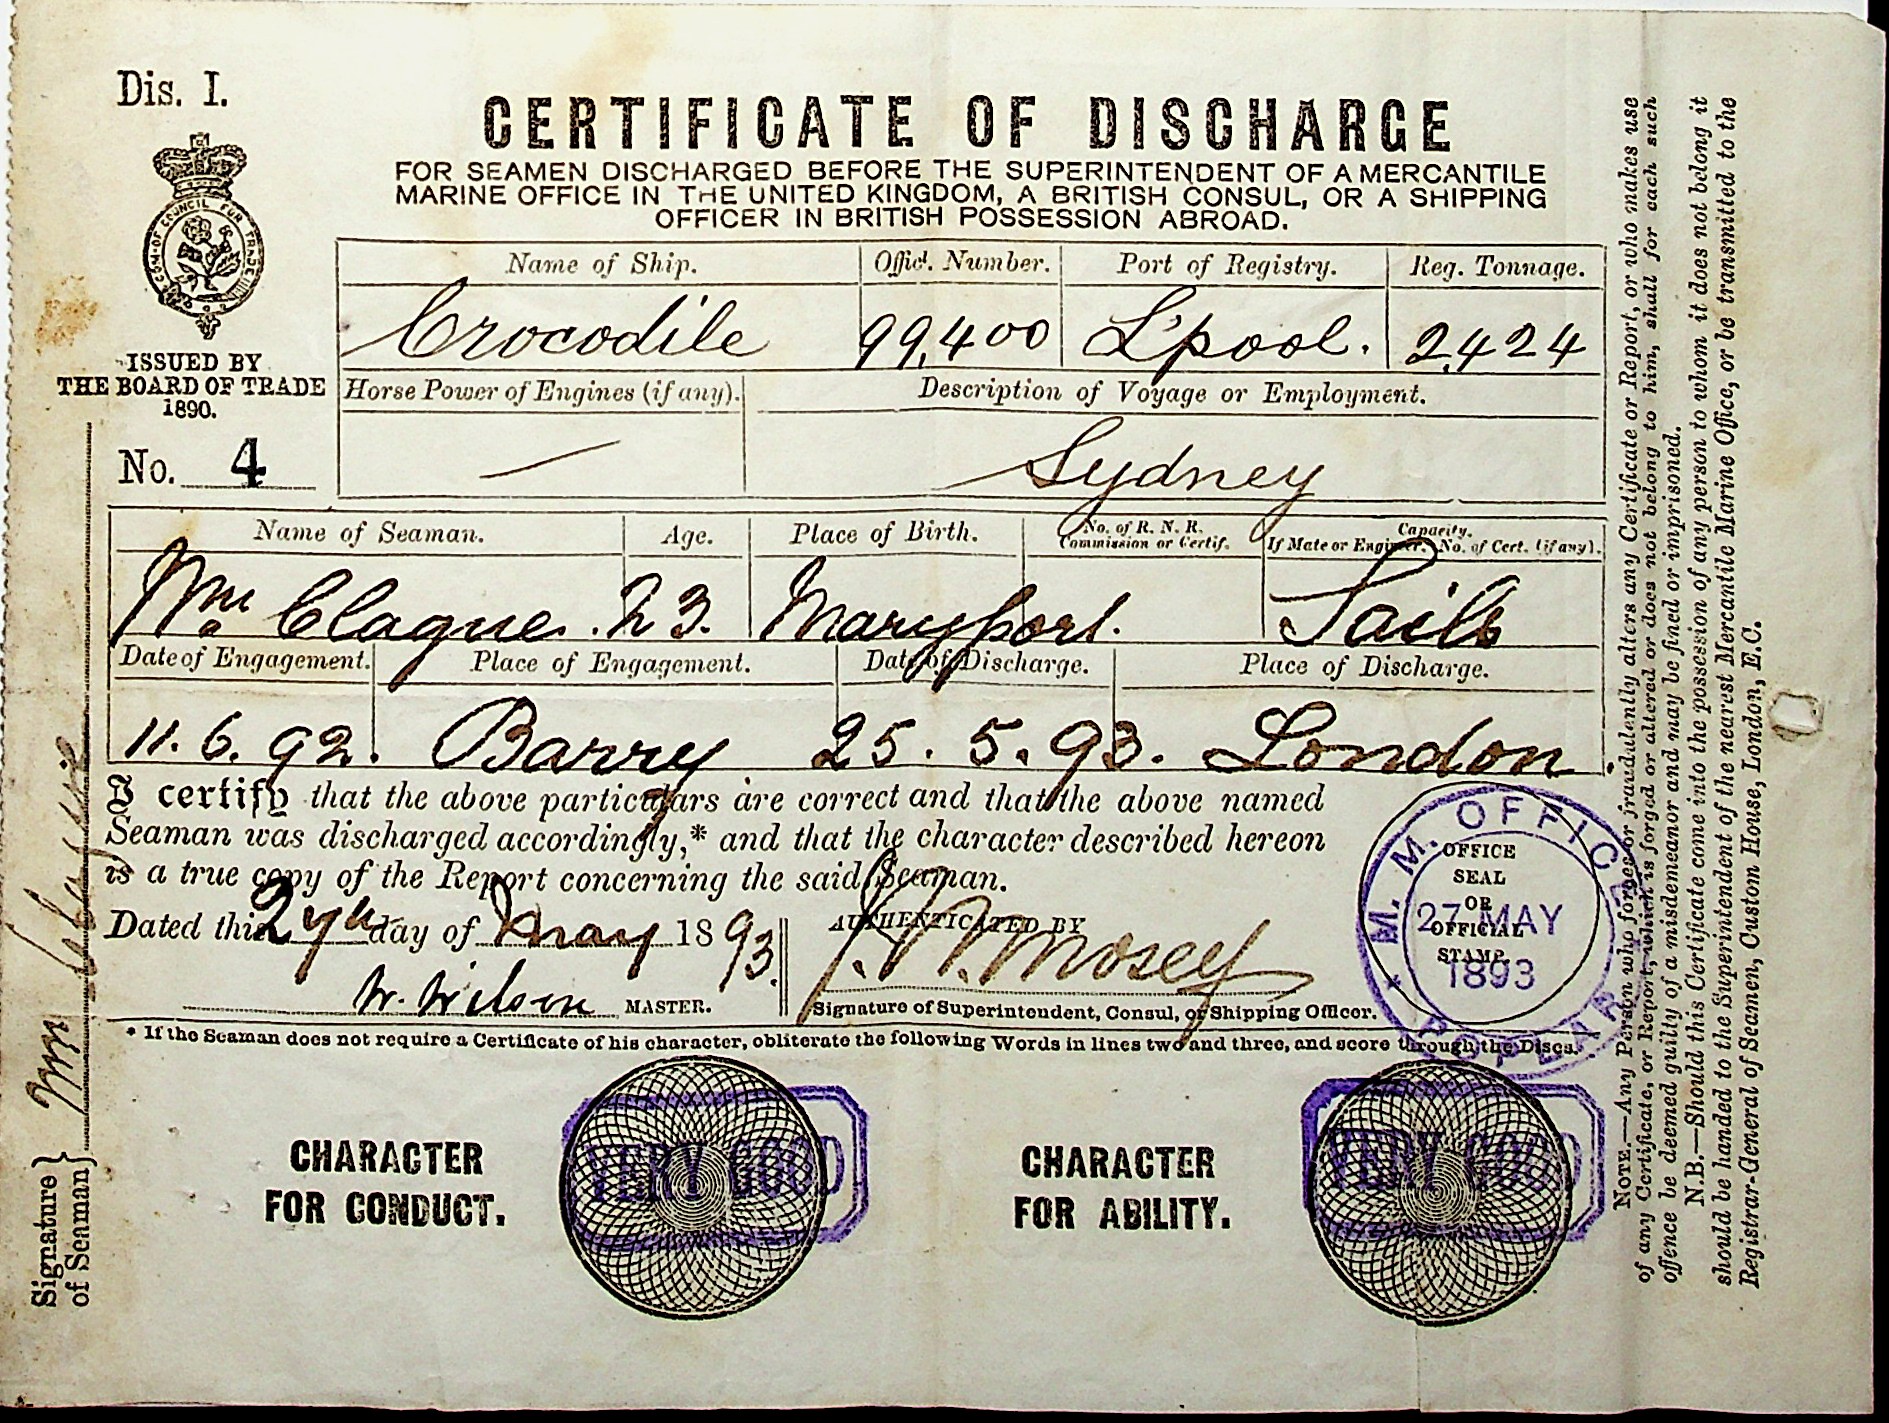 Dis. I.
CERTIFICATE OF DISCHARGE
FOR SEAMEN DISCHARGED BEFORE THE SUPERINTENDENT OF A MERCANTILE
MARINE OFFICE IN THE UNITED KINGDOM, A BRITISH CONSUL, OR A SHIPPING
OFFICER IN BRITISH POSSESSION ABROAD.
COM: OF COUNCIL FOR TRADE
ISSUED BY
THE BOARD OF TRADE
1890.
No. 4
Name of Ship. Offic'l. Number. Port of Registry. Reg. Tonnage.
Crocodile 99,400 L'pool. 2,424
Horse Power of Engines (if any). Description of Voyage or Employment.
— Sydney
Name of Seaman. Age. Place of Birth. No. of R. N. R. Commission or Certif. Capacity. If Mate or Engineer, No. of Cert. (if any).
Wm Clague. 23. Maryport. Sails
Date of Engagement. Place of Engagement. Date of Discharge. Place of Discharge.
11. 6. 92. Barry 25. 5. 93. London.
I certify that the above particulars are correct and that the above named
Seaman was discharged accordingly,* and that the character described hereon
is a true copy of the Report concerning the said Seaman.
Dated this 27th day of May 1893
AUTHENTICATED BY
W. Wilson MASTER.
Mosey
Signature of Superintendent, Consul, or Shipping Officer.
M. M. OFFICE
POPLAR
27 MAY
1893
OFFICE
SEAL
OR
OFFICIAL
STAMP.
* If the Seaman does not require a Certificate of his character, obliterate the following Words in lines two and three, and score through the Discs.
CHARACTER
FOR CONDUCT.
VERY GOOD
CHARACTER
FOR ABILITY.
VERY GOOD
Signature
of Seaman
Wm Clague
NOTE.—Any Person who forges or fraudulently alters any Certificate or Report, or who makes use
of any Certificate, or Report, which is forged or altered or does not belong to him, shall for each such
offence be deemed guilty of a misdemeanor and may be fined or imprisoned.
N.B.—Should this Certificate come into the possession of any person to whom it does not belong it
should be handed to the Superintendent of the nearest Mercantile Marine Office, or be transmitted to the
Registrar-General of Seamen, Custom House, London, E.C.